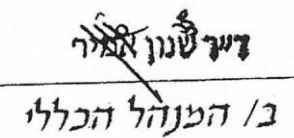 דייר שנון אמיר
ב/ המנהל הכללי